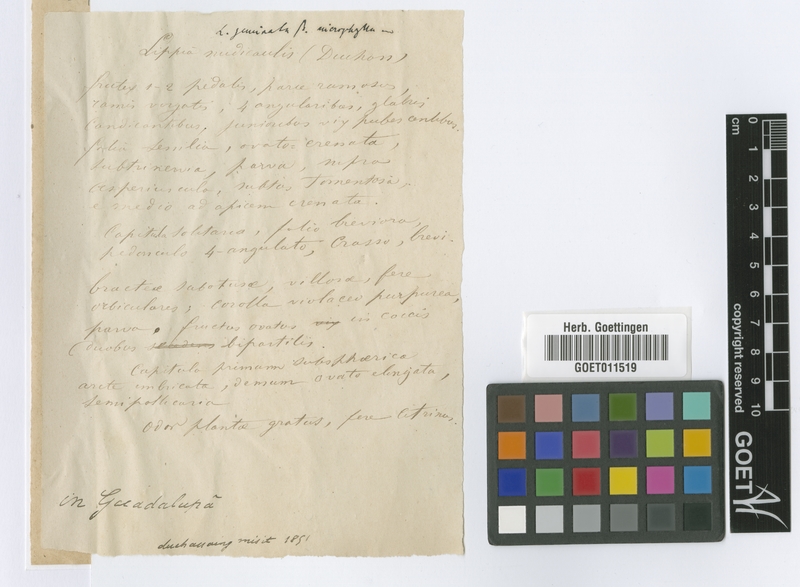 L. geminata β. microphylla
Lippia nudicaulis (Duchass)
frutex 1-2 pedalis, parce ramosus,
ramis virgatis, 4 angularibus, glabris
candicantibus, junioribus vix pubescentibus.
folia sessilia, ovata crenata,
subtrinervia, parva, supra
asperiuscula, subtus tomentosa,
e medio ad apicem crenata.
Capitula solitaria, folio breviora,
pedonculo 4-angulato, crasso, brevi.
bracteæ subotusæ, villosæ, fere
orbiculares; corolla violaceo purpurea,
parva. fructus ovatus in coccis
duobus bipartilis.
Capitula primum subsphærica
arcte imbricata, demum ovato elongata,
semipollicaria
Odor plantæ gratus, fere citrinus.
in Guadalupâ
duchassaing misit 1851
Herb. Goettingen
GOET011519
cm
0 1 2 3 4 5 6 7 8 9 10
copyright reserved
GOET